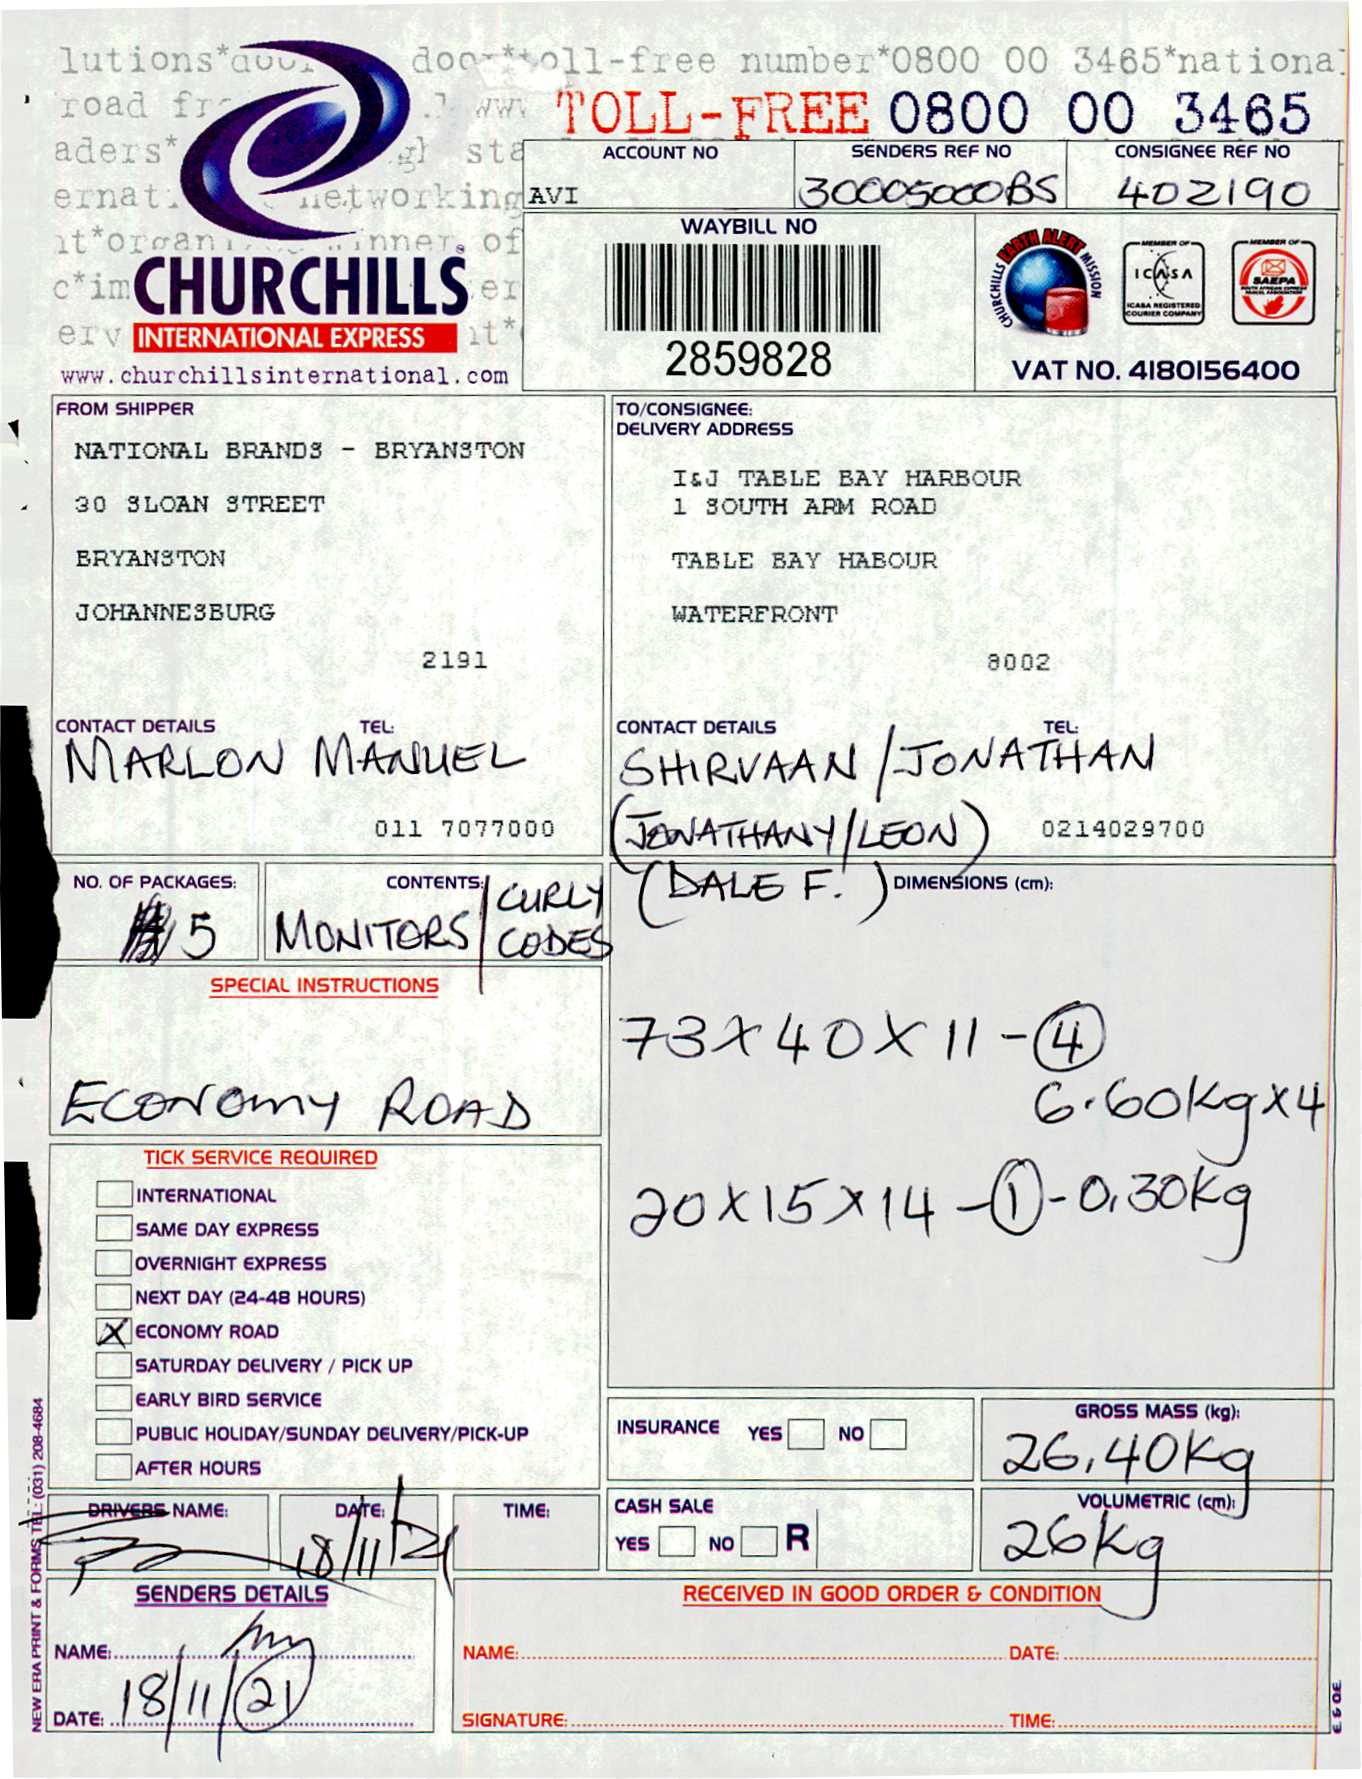 lutions* door*toll-free number*0800 00 3465*nationa
road
TOLL-FREE 0800 00 3465
aders*
ACCOUNT NO SENDERS REF NO CONSIGNEE REF NO
networking AVI 30005000BS 402190
WAYBILL NO
CHURCHILLS
INTERNATIONAL EXPRESS
www.churchillsinternational.com
2859828
CHURCHILLS EARTH ALERT MISSION
MEMBER OF
ICASA
ICASA REGISTERED
COURIER COMPANY
MEMBER OF
SAEPA
VAT NO. 4180156400
FROM SHIPPER
NATIONAL BRANDS - BRYANSTON
30 SLOAN STREET
BRYANSTON
JOHANNESBURG
2191
CONTACT DETAILS TEL:
MARLON MANUEL
011 7077000
TO/CONSIGNEE:
DELIVERY ADDRESS
I&J TABLE BAY HARBOUR
1 SOUTH ARM ROAD
TABLE BAY HABOUR
WATERFRONT
8002
CONTACT DETAILS TEL:
SHIRVAAN / JONATHAN
(JONATHANY/LEON) 0214029700
(DALE F.)
NO. OF PACKAGES:
5
CONTENTS:
MONITORS / CURLY
CODES
DIMENSIONS (cm):
73 X 40 X 11 - 4
6.60kg X 4
20 X 15 X 14 - 1 - 0,30kg
SPECIAL INSTRUCTIONS
ECONOMY ROAD
TICK SERVICE REQUIRED
INTERNATIONAL
SAME DAY EXPRESS
OVERNIGHT EXPRESS
NEXT DAY (24-48 HOURS)
X ECONOMY ROAD
SATURDAY DELIVERY / PICK UP
EARLY BIRD SERVICE
PUBLIC HOLIDAY/SUNDAY DELIVERY/PICK-UP
AFTER HOURS
INSURANCE YES NO
GROSS MASS (kg):
26,40kg
DRIVERS NAME: DATE: TIME:
18/11/21
CASH SALE
YES NO R
VOLUMETRIC (cm):
26kg
SENDERS DETAILS
NAME:
DATE: 18/11/21
RECEIVED IN GOOD ORDER & CONDITION
NAME: DATE:
SIGNATURE: TIME:
NEW ERA PRINT & FORMS TEL: (031) 208-4684
E & OE